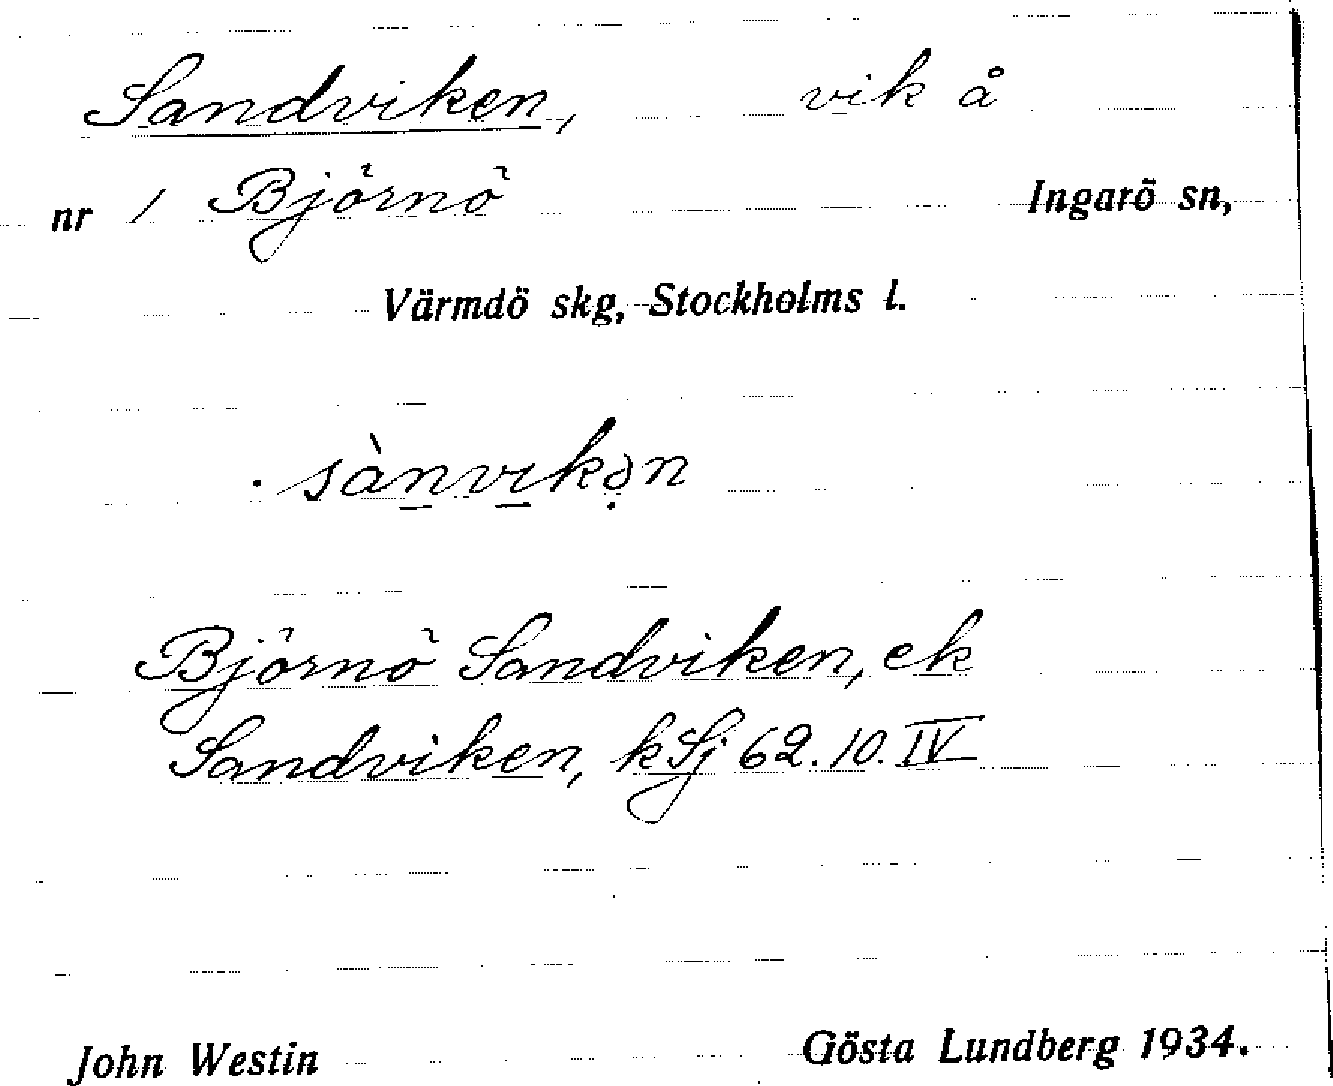 Sandviken, vik å
nr 1 Björnö Ingarö sn,
Värmdö skg, Stockholms l.
. sànvikən
Björnö Sandviken, ek
Sandviken, kSj 62.10.IV
John Westin Gösta Lundberg 1934.